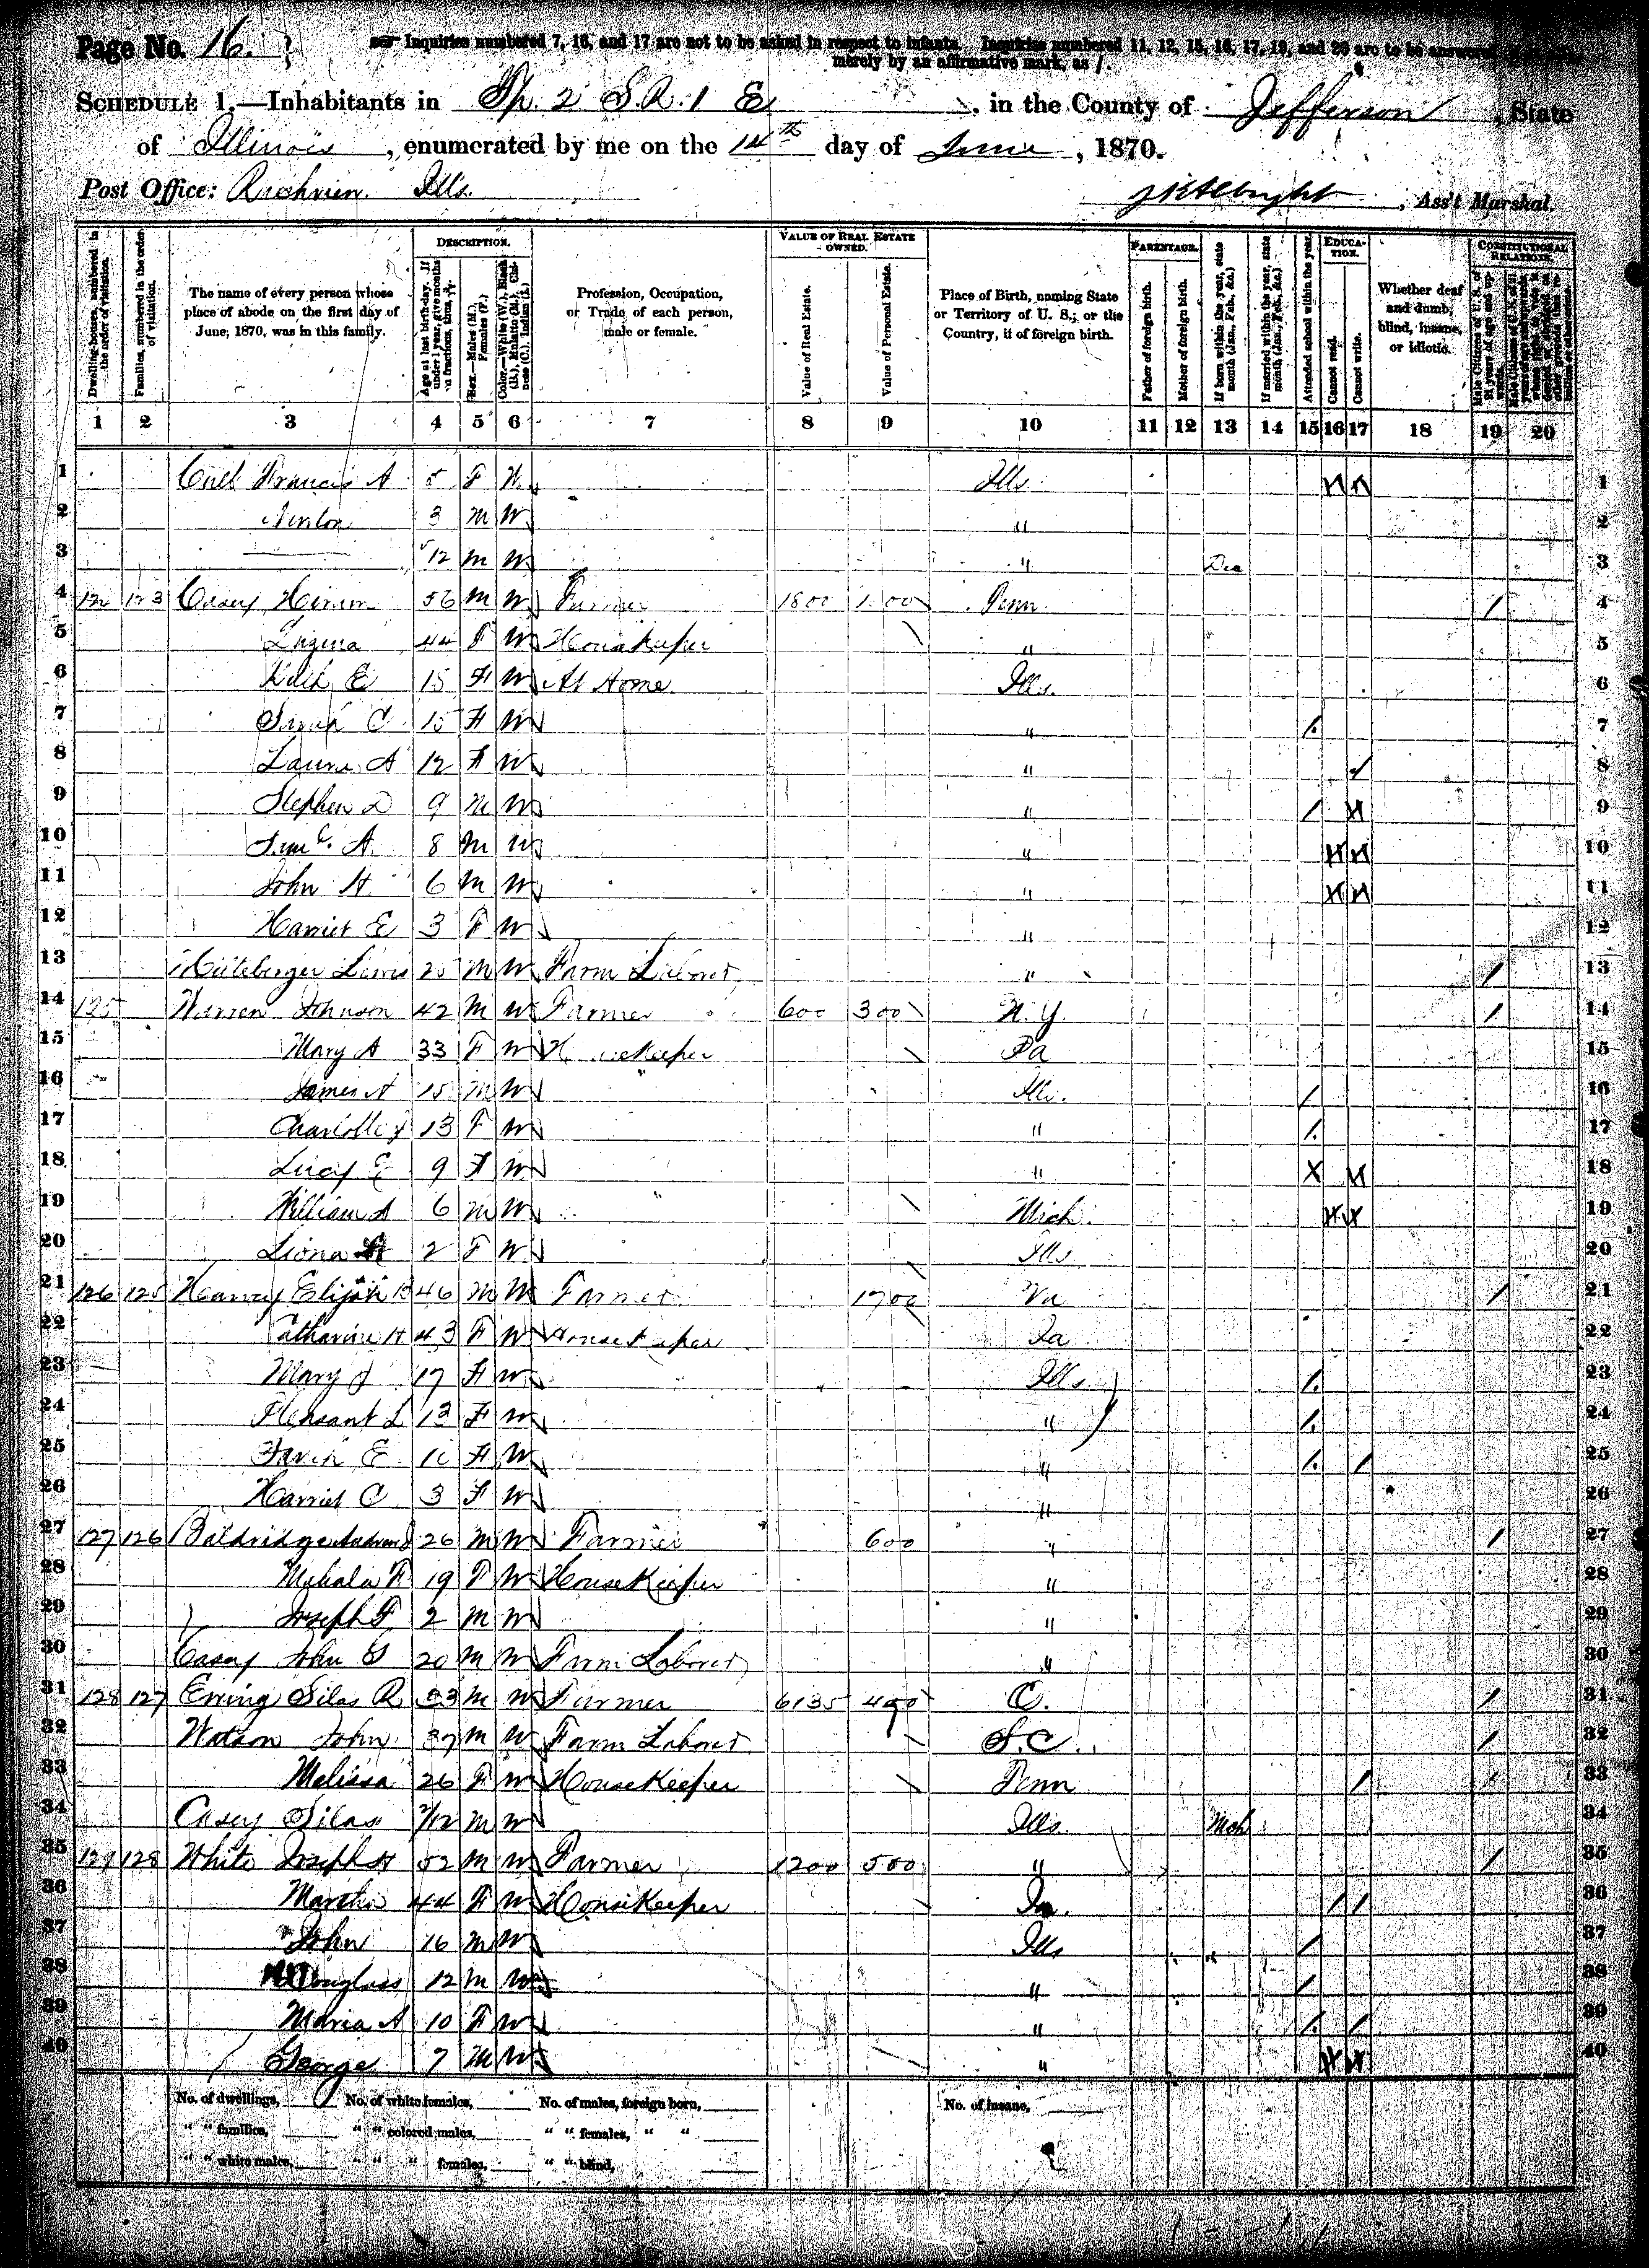 Page No. 16.
Inquiries numbered 7, 16, and 17 are not to be asked in respect to infants. Inquiries numbered 11, 12, 15, 16, 17, 19, and 20 are to be answered
merely by an affirmative mark, as /.
SCHEDULE 1.—Inhabitants in Tp. 2 S. R. 1 E, in the County of Jefferson, State
of Illinois, enumerated by me on the 14th day of June, 1870.
Post Office: Richview Ills. Albright, Ass't Marshal.
DESCRIPTION. VALUE OF REAL ESTATE OWNED. PARENTAGE. EDUCATION. CONSTITUTIONAL RELATIONS.
Dwelling-houses, numbered in the order of visitation.
Families, numbered in the order of visitation.
The name of every person whose place of abode on the first day of June, 1870, was in this family.
Age at last birth-day. If under 1 year, give months in fractions, thus,
Sex.—Males (M.), Females (F.)
Color.—White (W.), Black (B.), Mulatto (M.), Chinese (C.), Indian (I.)
Profession, Occupation, or Trade of each person, male or female.
Value of Real Estate.
Value of Personal Estate.
Place of Birth, naming State or Territory of U. S.; or the Country, if of foreign birth.
Father of foreign birth.
Mother of foreign birth.
If born within the year, state month (Jan., Feb., &c.)
If married within the year, state month (Jan., Feb., &c.)
Attended school within the year.
Cannot read.
Cannot write.
Whether deaf and dumb, blind, insane, or idiotic.
Male Citizens of U. S. of 21 years of age and upwards.
1 2 3 4 5 6 7 8 9 10 11 12 13 14 15 16 17 18 19 20
1 Francis A 5 F W Ills. 1
2 3 M W " 2
3 5/12 M W " Dec 3
4 123 Casey 56 M W Farmer 1800 Penn. / 4
5 44 F W Housekeeper " 5
6 E 18 F W At Home Ills. 6
7 Sarah C 15 F W " / 7
8 Laura A 12 F W " / 8
9 Stephen D 9 M W " / 9
10 A. 8 M W " 10
11 John H. 6 M W " 11
12 Harriet E 3 F W " 12
13 Lewis M W Farm Laborer " / 13
14 125 Warren Johnson 42 M W Farmer 600 300 N. Y. / 14
15 Mary A 33 F W Housekeeper Pa 15
16 James A 15 M W Ills. / 16
17 Charlotte 13 F W " / 17
18 Lucy E 9 F W " X 18
19 William A 6 M W Mich. 19
20 Liona 2 F W Ills 20
21 126 125 Harvey Elijah B 46 M W Farmer 1700 Va / 21
22 Catharine H 43 F W Housekeeper 22
23 Mary J 17 F W Ills. / 23
24 Pleasant L 13 F W " / 24
25 Sarah E F W " / / 25
26 Harriet C 3 F W " 26
27 127 126 Baldridge Andrew J 26 M W Farmer 600 " / 27
28 Mahala F 19 F W HouseKeeper " 28
29 Joseph F 2 M W " 29
30 Casey John S 20 M W Farm Laborer " 30
31 128 127 Ewing Silas R 53 M W Farmer 6135 O. / 31
32 Watson John 37 M W Farm Laborer S.C. / 32
33 Melissa 26 F W HouseKeeper Tenn / / 33
34 Casey Silas 3/12 M W Ills. Mch 34
35 129 128 White Joseph H 52 M W Farmer 1200 500 " / 35
36 Martha 44 F W HouseKeeper / / 36
37 John 16 M W Ills / 37
38 Douglass 12 M W " / 38
39 Maria A 10 F W " / / 39
40 George 7 M W " 40
No. of dwellings, No. of white females, No. of males, foreign born, No. of insane,
" " families, " " colored males, " " females, " "
" " white males, " " " females, " " blind,